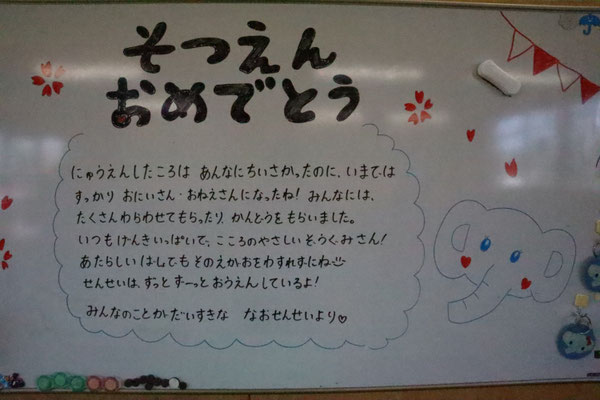 そつえん
おめでとう
にゅうえんしたころは あんなにちいさかったのに、いまでは
すっかり おにいさん・おねえさんになったね！みんなには、
たくさんわらわせてもらったり、かんどうをもらいました。
いつもげんきいっぱいで、こころのやさしいぞうぐみさん！
あたらしいばしょでもそのえがおをわすれずにね
せんせいは、ずっとずーっとおうえんしているよ！
みんなのことがだいすきな なおせんせいより♡